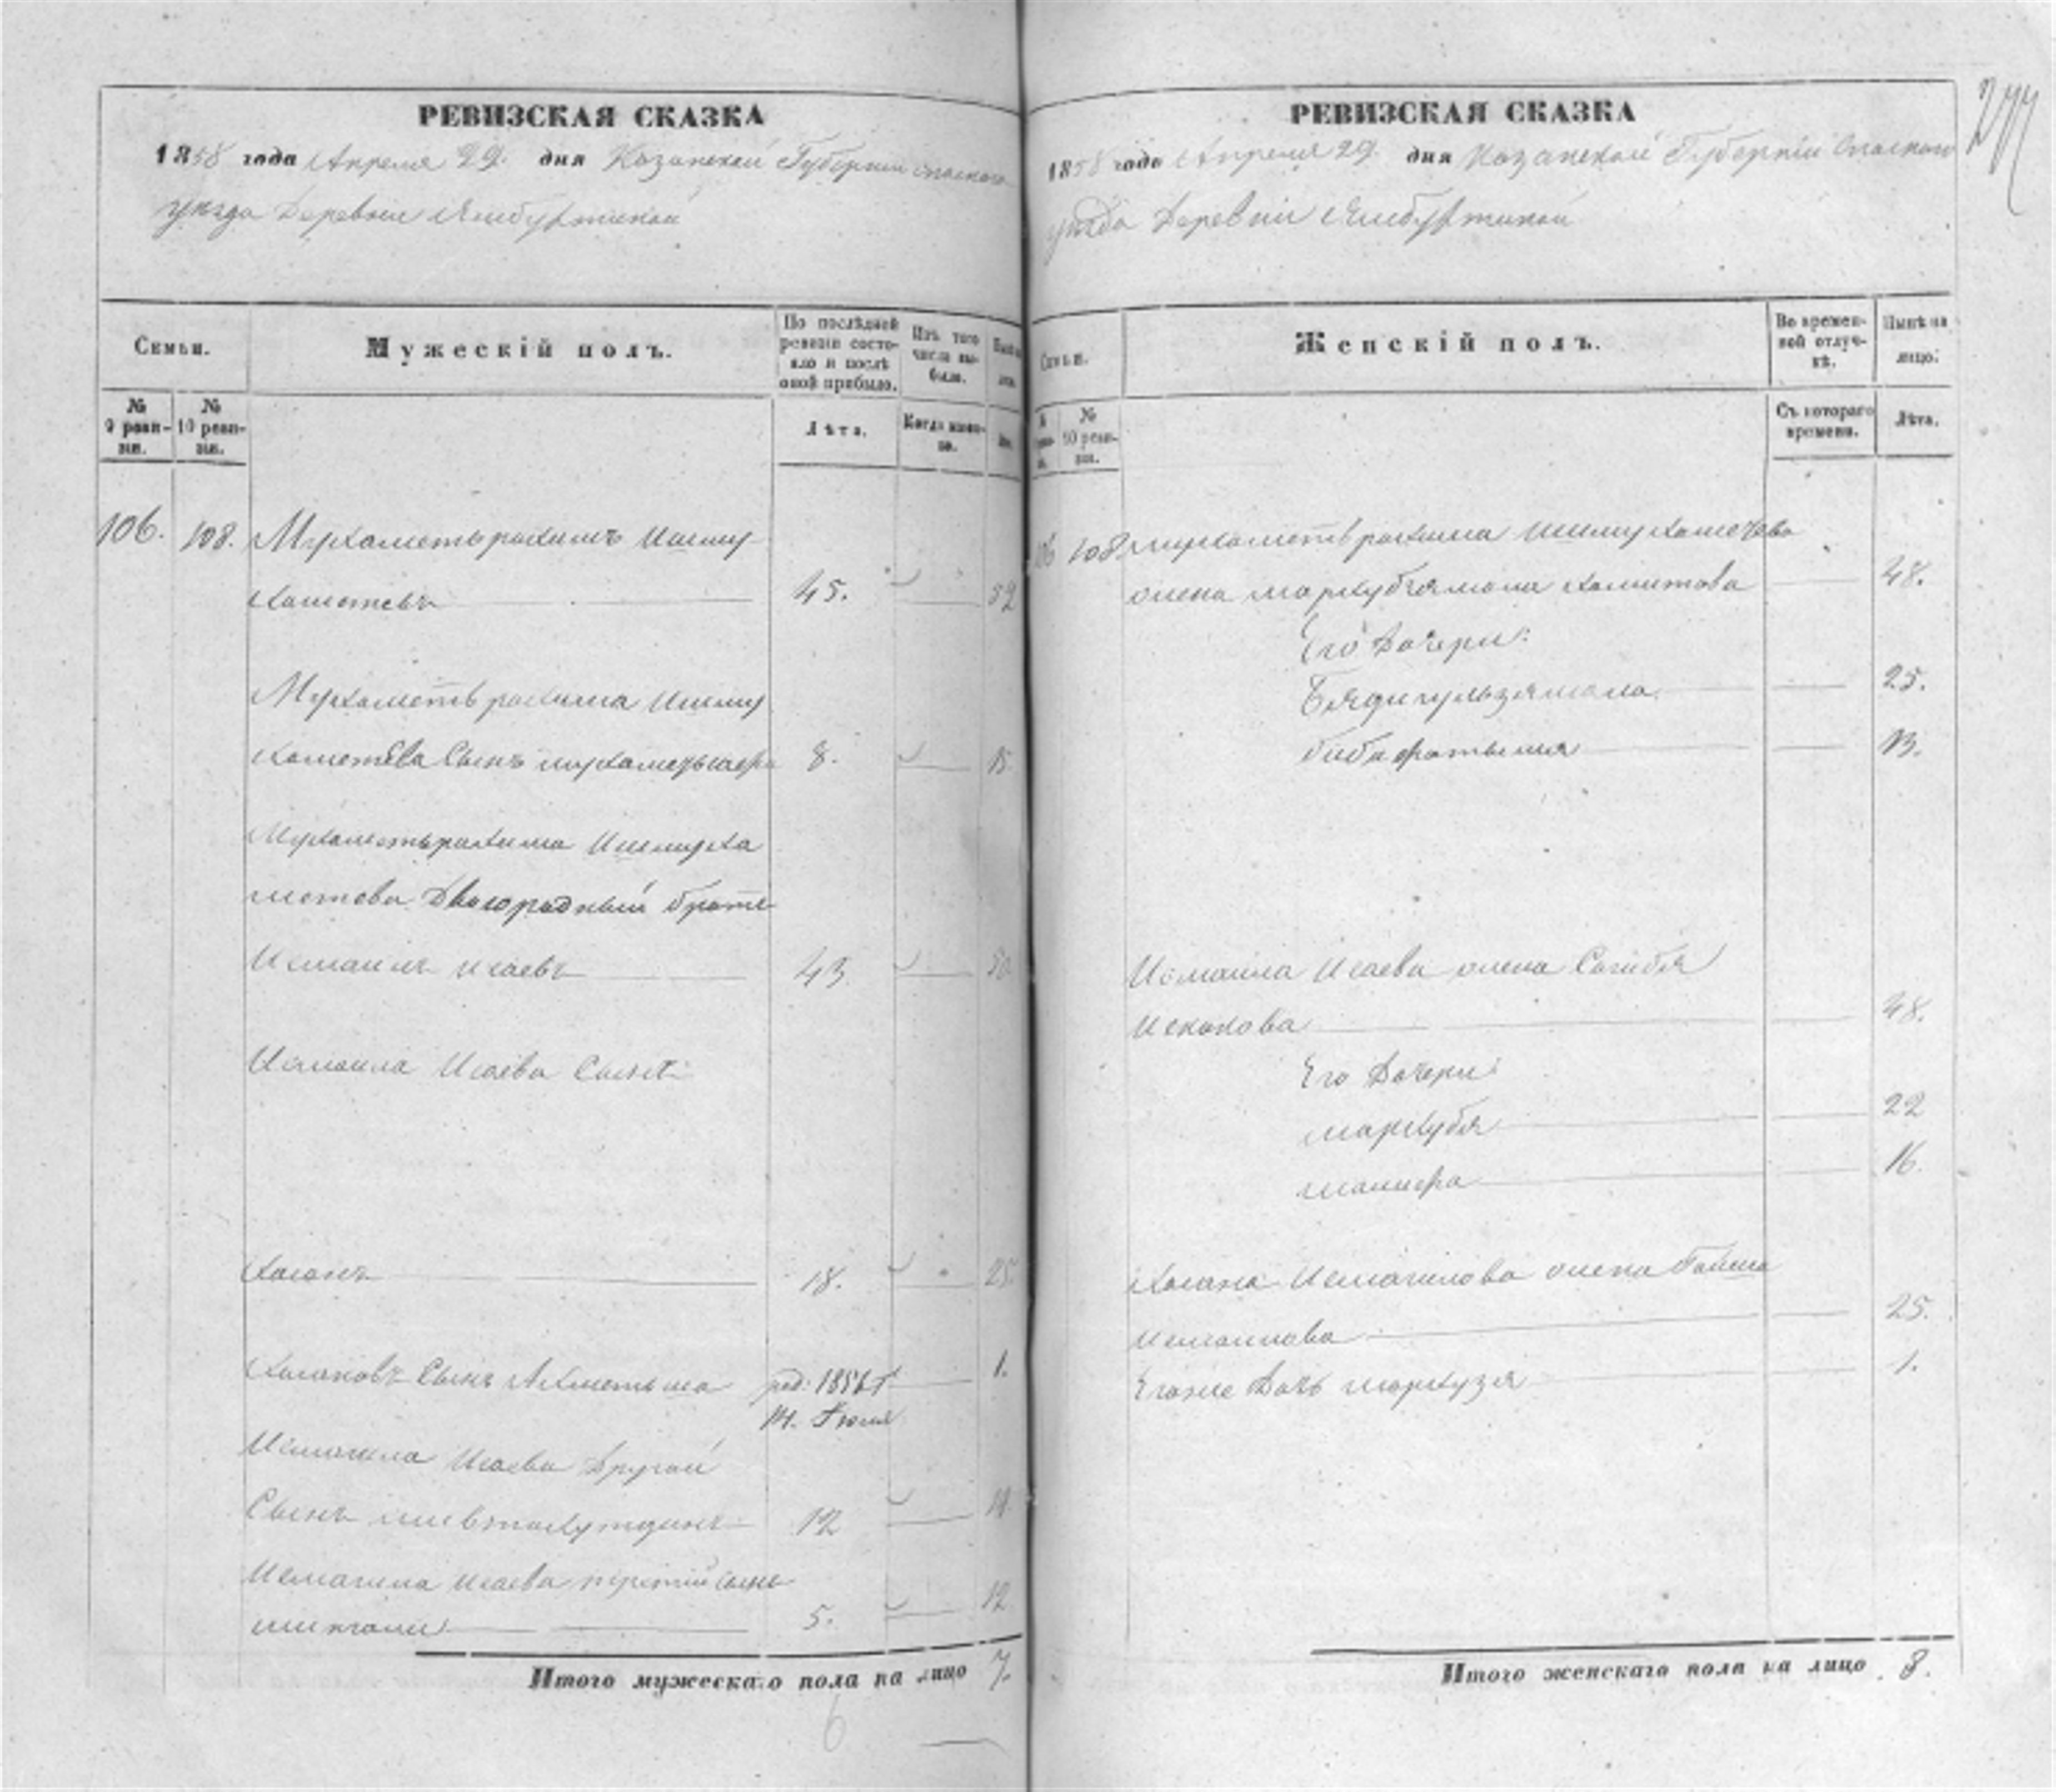 РЕВИЗСКАЯ СКАЗКА
1858 года Апреля 29. дня Казанской Губернии Спаскаго
уѣзда Деревни Ямбухтиной
Семьи.
Мужескій полъ.
По послѣдней ревизіи состояло и послѣ оной прибыло.
Изъ того числа выбыло.
№ 9 ревизіи.
№ 10 ревизіи.
Лѣта.
Когда именно.
106. 108. Мухаметьрахимъ Ишму
хаметевъ 45. 52
Мухаметьрахима Ишму
хаметева Сынъ 8. 15.
Мухаметьрахима Ишмуха
метева Двоюродный братъ
Исмаилъ Исаевъ 43. 50
Исмаила Исаева Сынъ
Хасанъ 18. 25.
Хасановъ Сынъ Ахметьша род: 1856 г 1.
м. Іюля
Исмагила Исаева Другой
Сынъ 12
Исмагила Исаева третій сынъ
мингали 5. 12.
Итого мужескаго пола на лицо 7.
6
РЕВИЗСКАЯ СКАЗКА
277
1858 года Апреля 29. дня Казанской Губерніи Спаскаго
уѣзда Деревни Ямбухтиной
Семьи.
Женскій полъ.
Во временной отлучкѣ.
Нынѣ на лицо.
№ 10 ревизіи.
Съ котораго времени.
Лѣта.
106 108 Мухаметьрахима Ишмухаметева
жена Хамитова 48.
Его Дочери:
Бядигульзямала 25.
бибифатыма 13.
Исмаила Исаева жена Сагибя
Исхакова 48.
Его Дочери
мархубя 22
16.
Хасана Исмагилова жена Гайша
Исмаилова 25.
Егоже Дочь мархузя 1.
Итого женскаго пола на лицо 8.